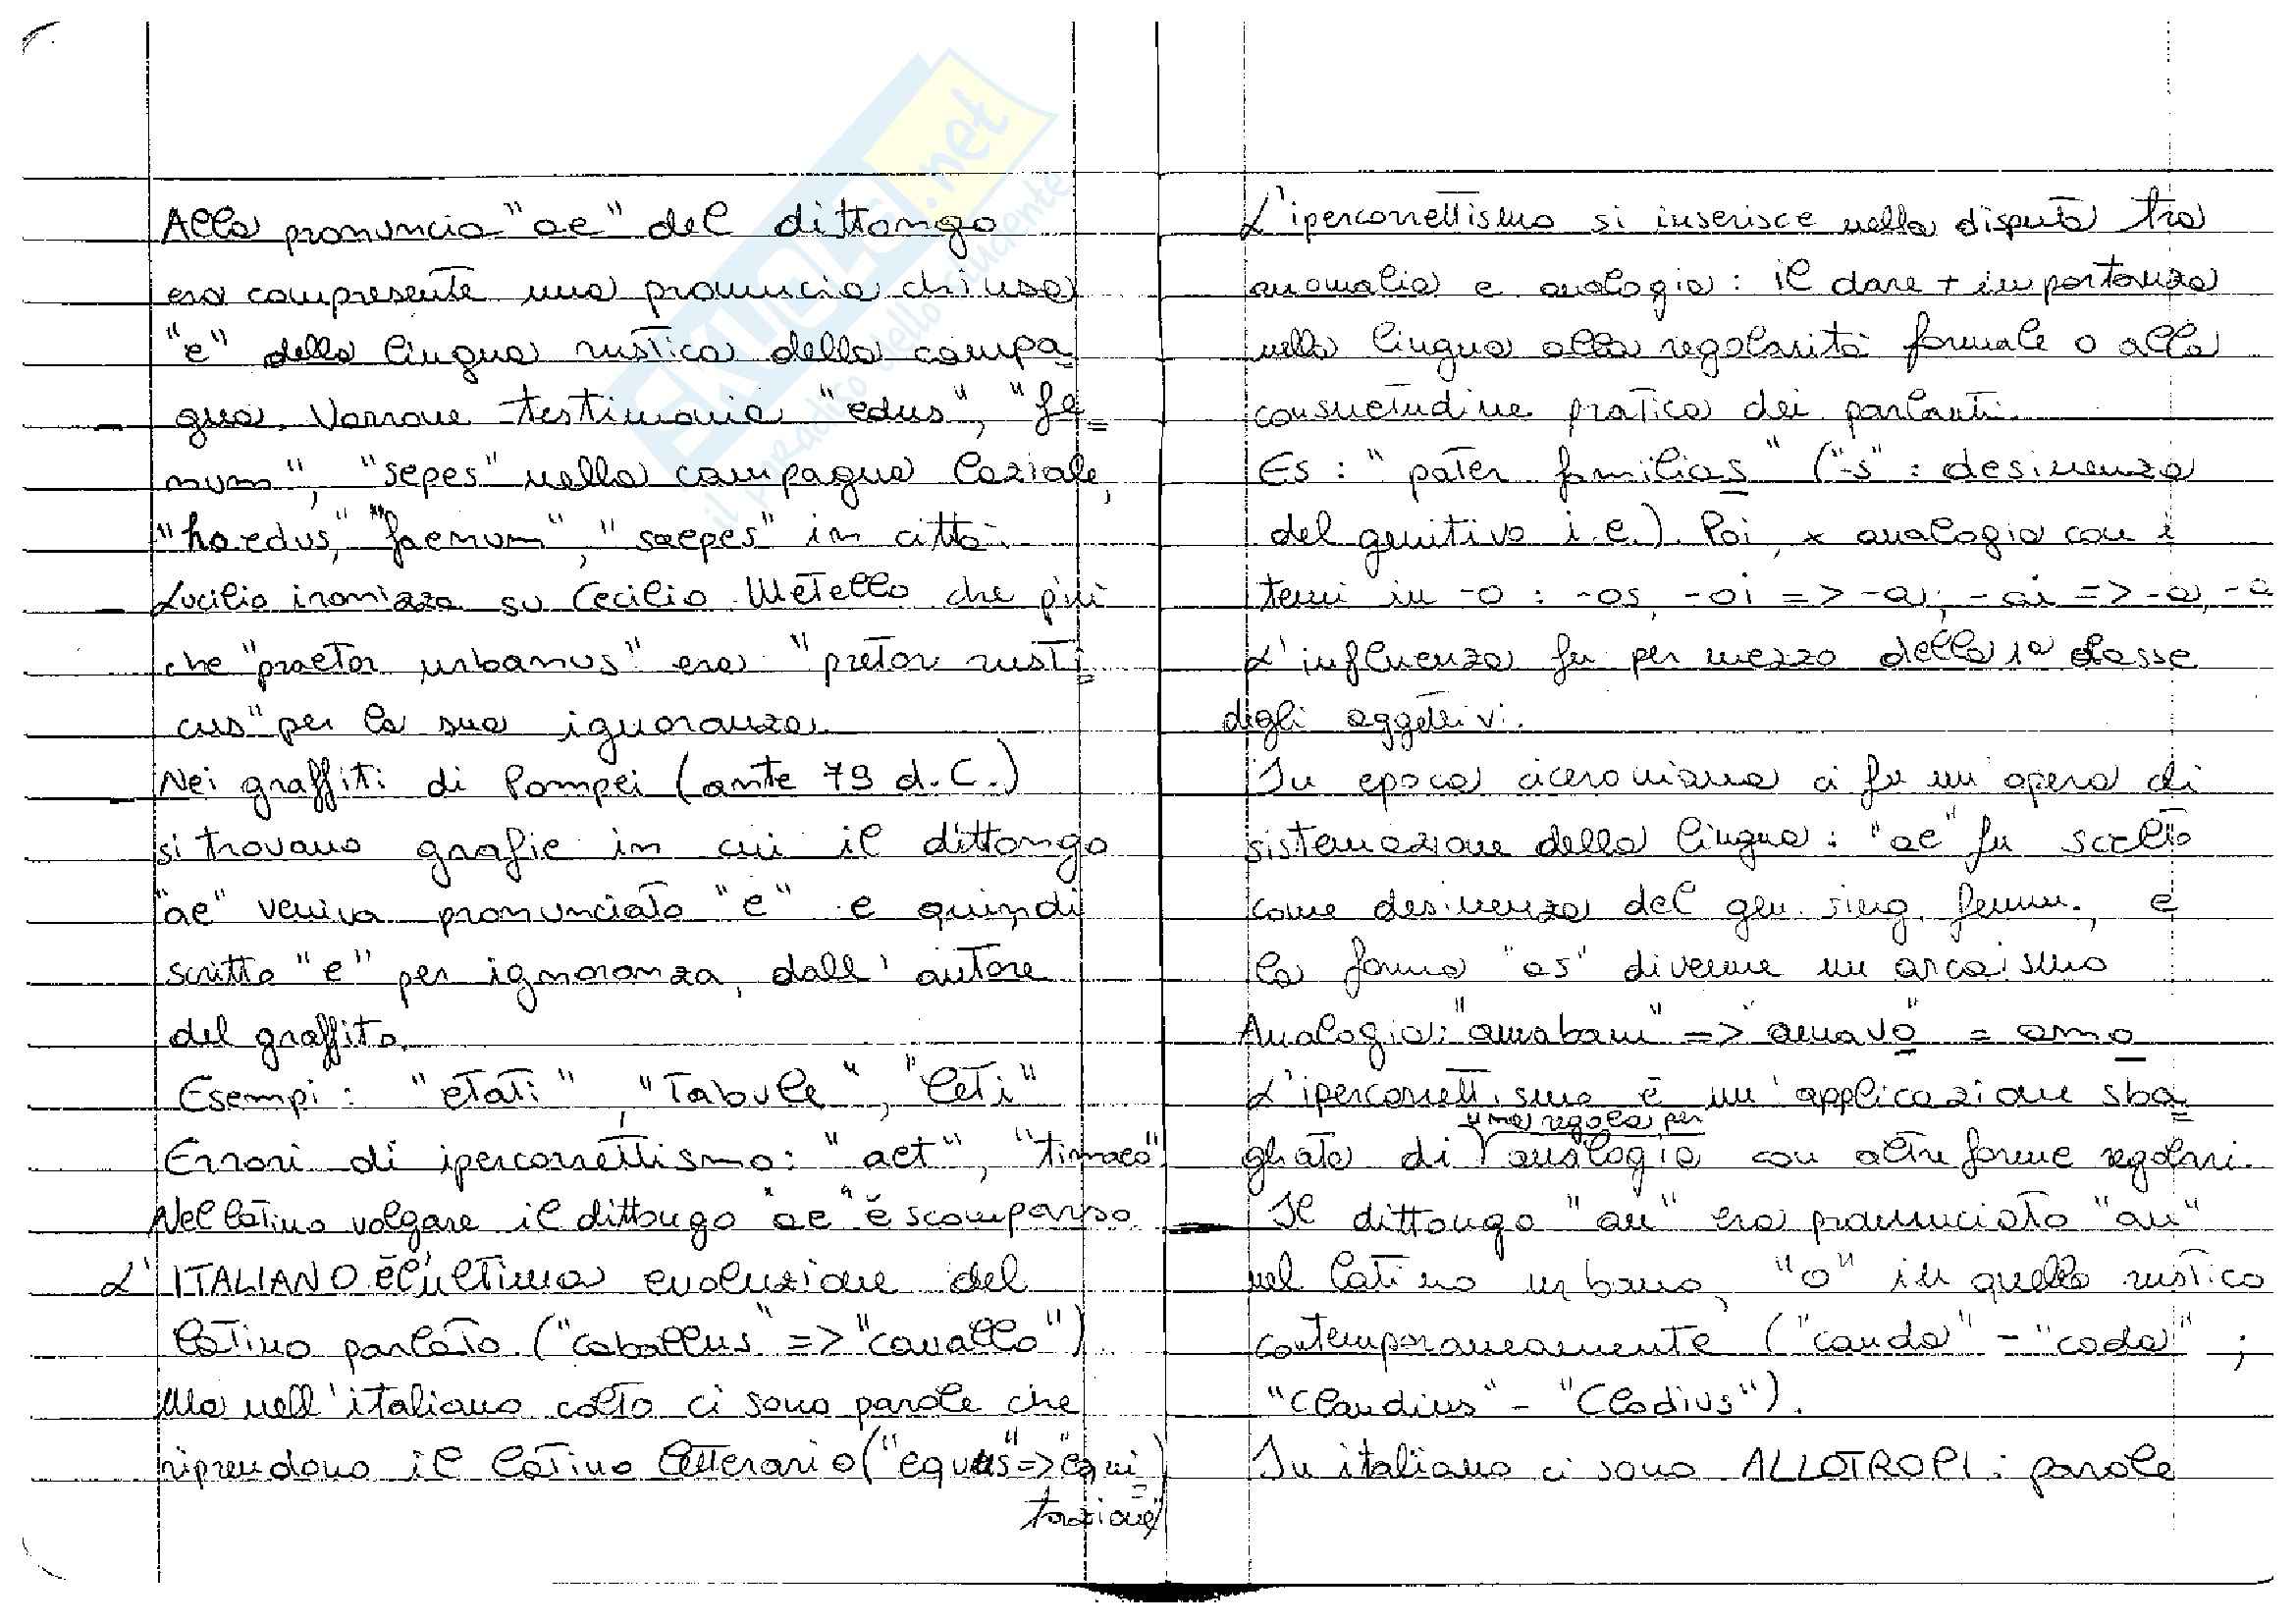 Alla pronuncia "ae" del dittongo
era compresente una pronuncia chiusa
"e" della lingua rustica della campa=
gna. Varrone testimonia "edus", "fe=
num", "sepes" nella campagna laziale,
"haedus," "faenum", "saepes" in città.
Lucilio ironizza su Cecilio Metello che più
che "praetor urbanus" era "pretor rusti=
cus" per la sua ignoranza.
Nei graffiti di Pompei (ante 79 d.C.)
si trovano grafie in cui il dittongo
"ae" veniva pronunciato "e" e quindi
scritto "e" per ignoranza, dall'autore
del graffito.
Esempi: "etati", "Tabule", "leti"
Errori di ipercorrettismo: "aet", "timaeo".
Nel latino volgare il dittongo "ae" è scomparso.
L'ITALIANO è l'ultima evoluzione del
latino parlato ("caballus" => "cavallo").
Ma nell'italiano colto ci sono parole che
riprendono il latino letterario ("equus" => "equi=
tazione")
L'ipercorrettismo si inserisce nella disputa tra
anomalia e analogia: il dare + importanza
nella lingua alla regolarità formale o alla
consuetudine pratica dei parlanti.
Es: "pater familias" ("-s": desinenza
del genitivo i.e.). Poi, x analogia con i
temi in -o: -os, -oi => -ai, -ai => -a, -a
L'influenza fu per mezzo della 1ª classe
degli aggettivi.
In epoca ciceroniana ci fu un'opera di
sistemazione della lingua: "ae" fu scelto
come desinenza del gen. sing. femm., e
la forma "as" divenne un arcaismo
Analogia: "amabam" => "amavo" = amo
L'ipercorrettismo è un'applicazione sba=
gliata di una regola per analogia con altre forme regolari.
Il dittongo "au" era pronunciato "au"
nel latino urbano, "o" in quello rustico
contemporaneamente ("cauda" - "coda";
"Claudius" - "Clodius").
In italiano ci sono ALLOTROPI: parole
SKUOLA.net
il paradiso dello studente